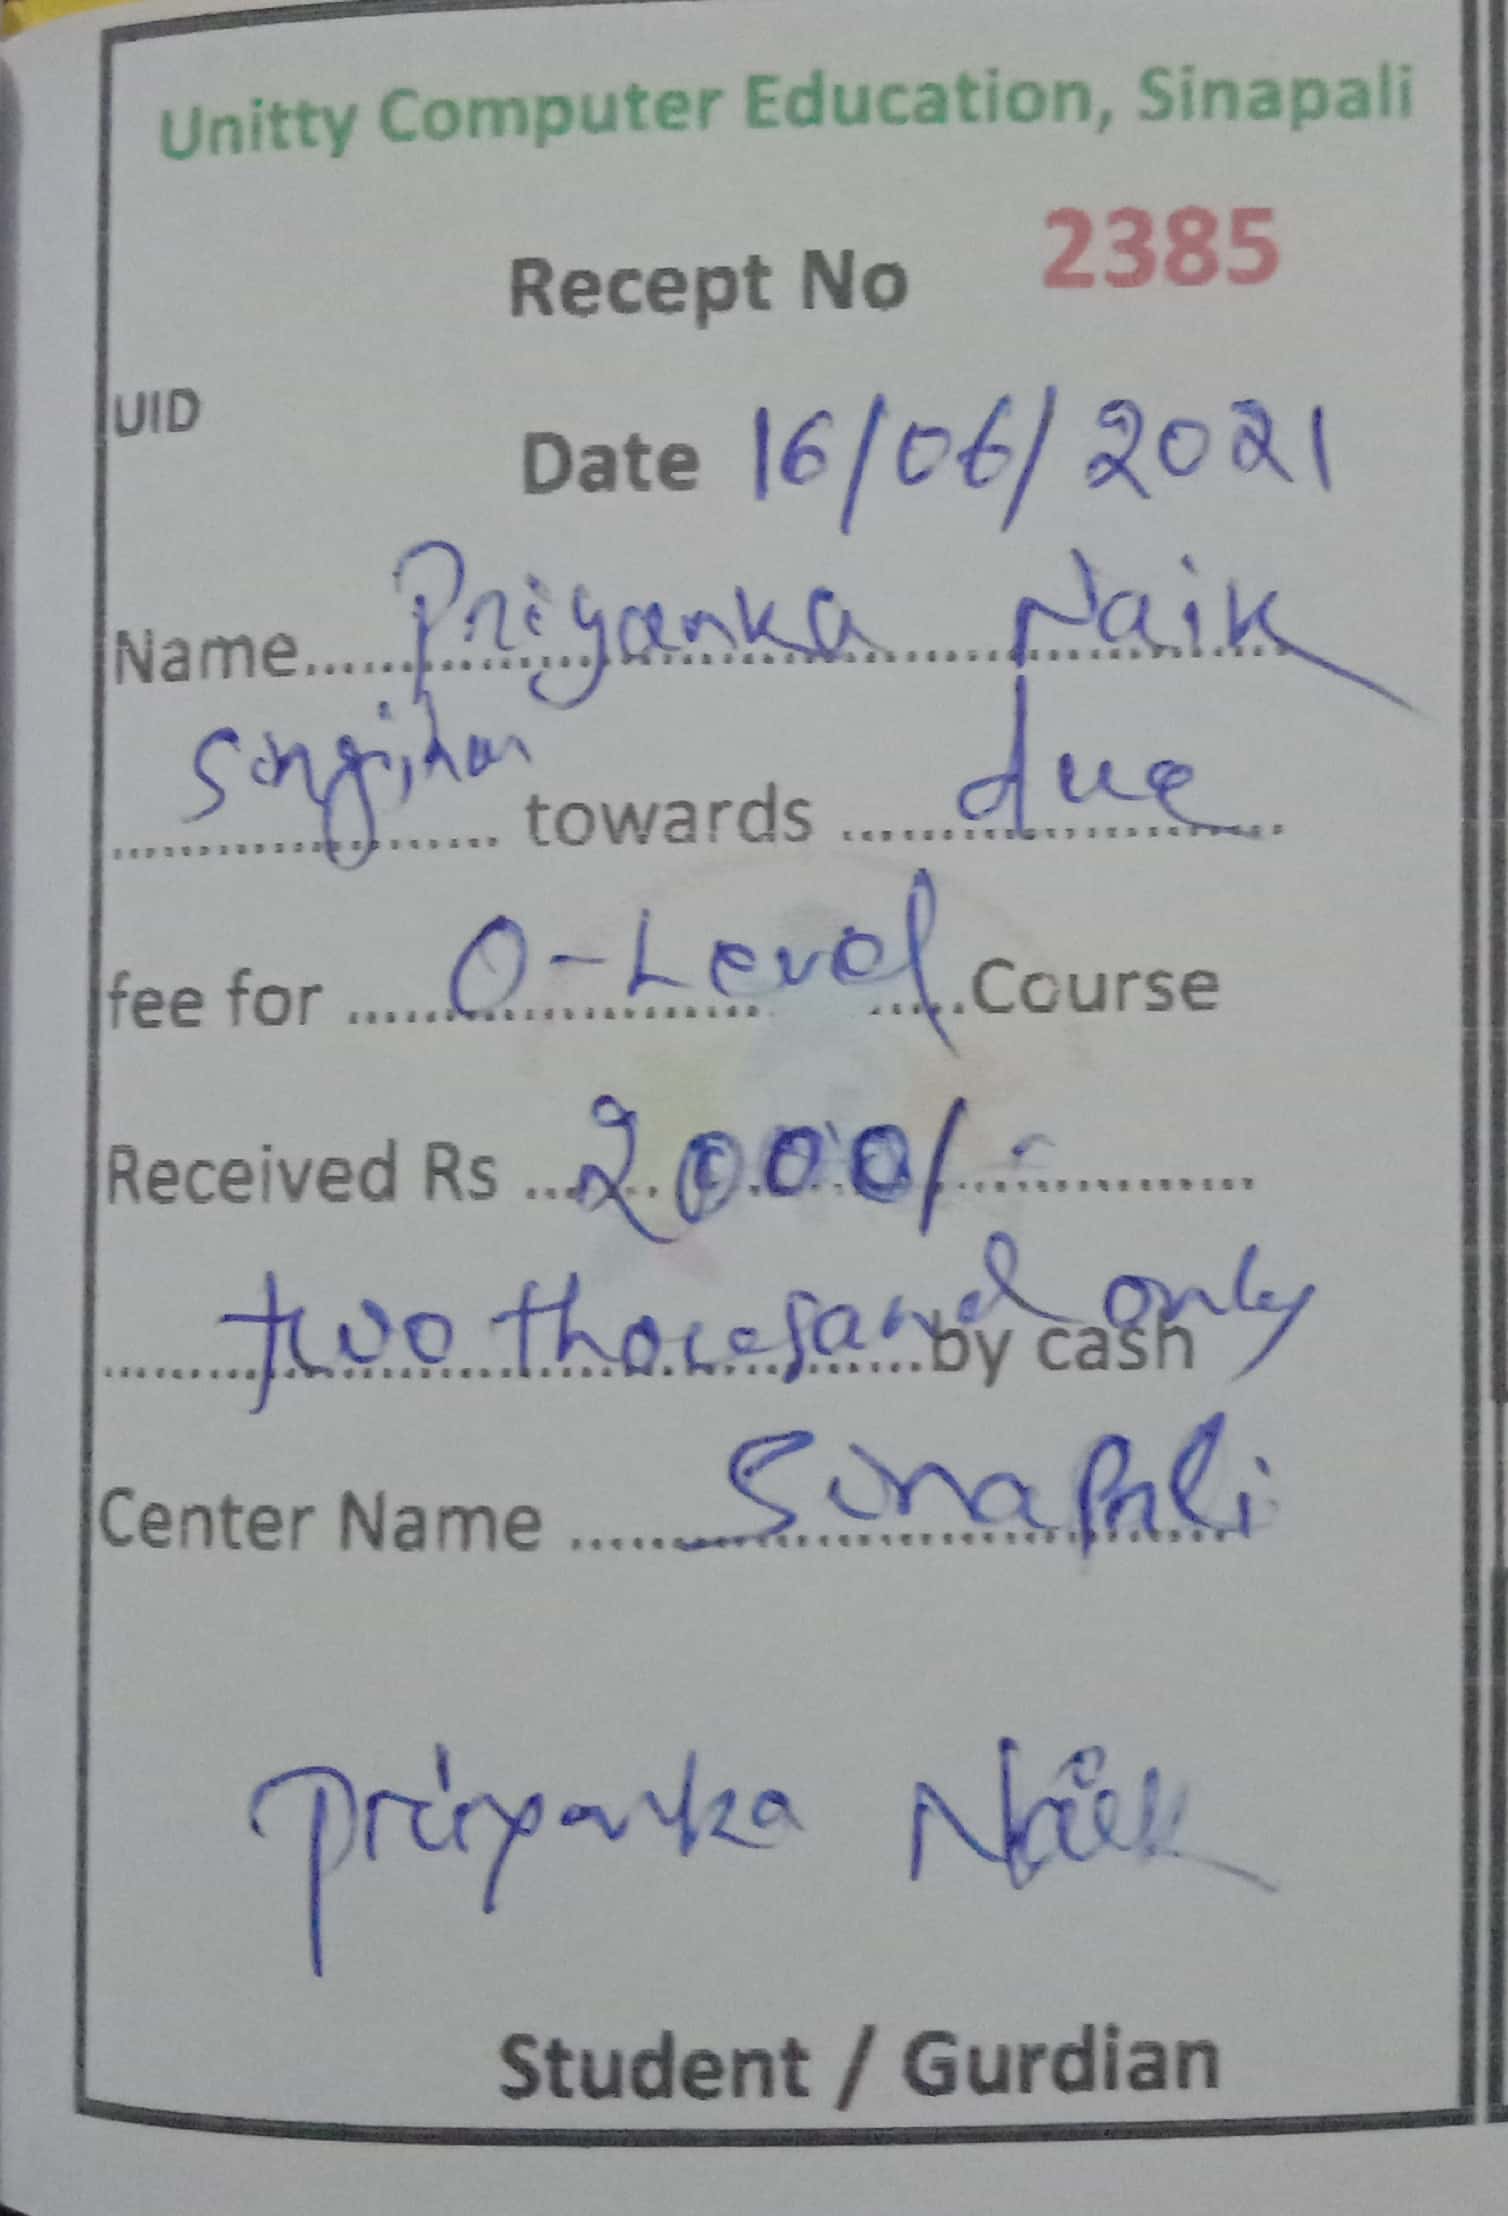 Unitty Computer Education, Sinapali
Recept No 2385
UID
Date 16/06/2021
Name.....Priyanka Naik
........ towards ..... due
fee for ..... O-Level .....Course
Received Rs .... 2000/- ........
........ two thousand only by cash
Center Name ...... Sinapali
Priyanka Naik
Student / Gurdian